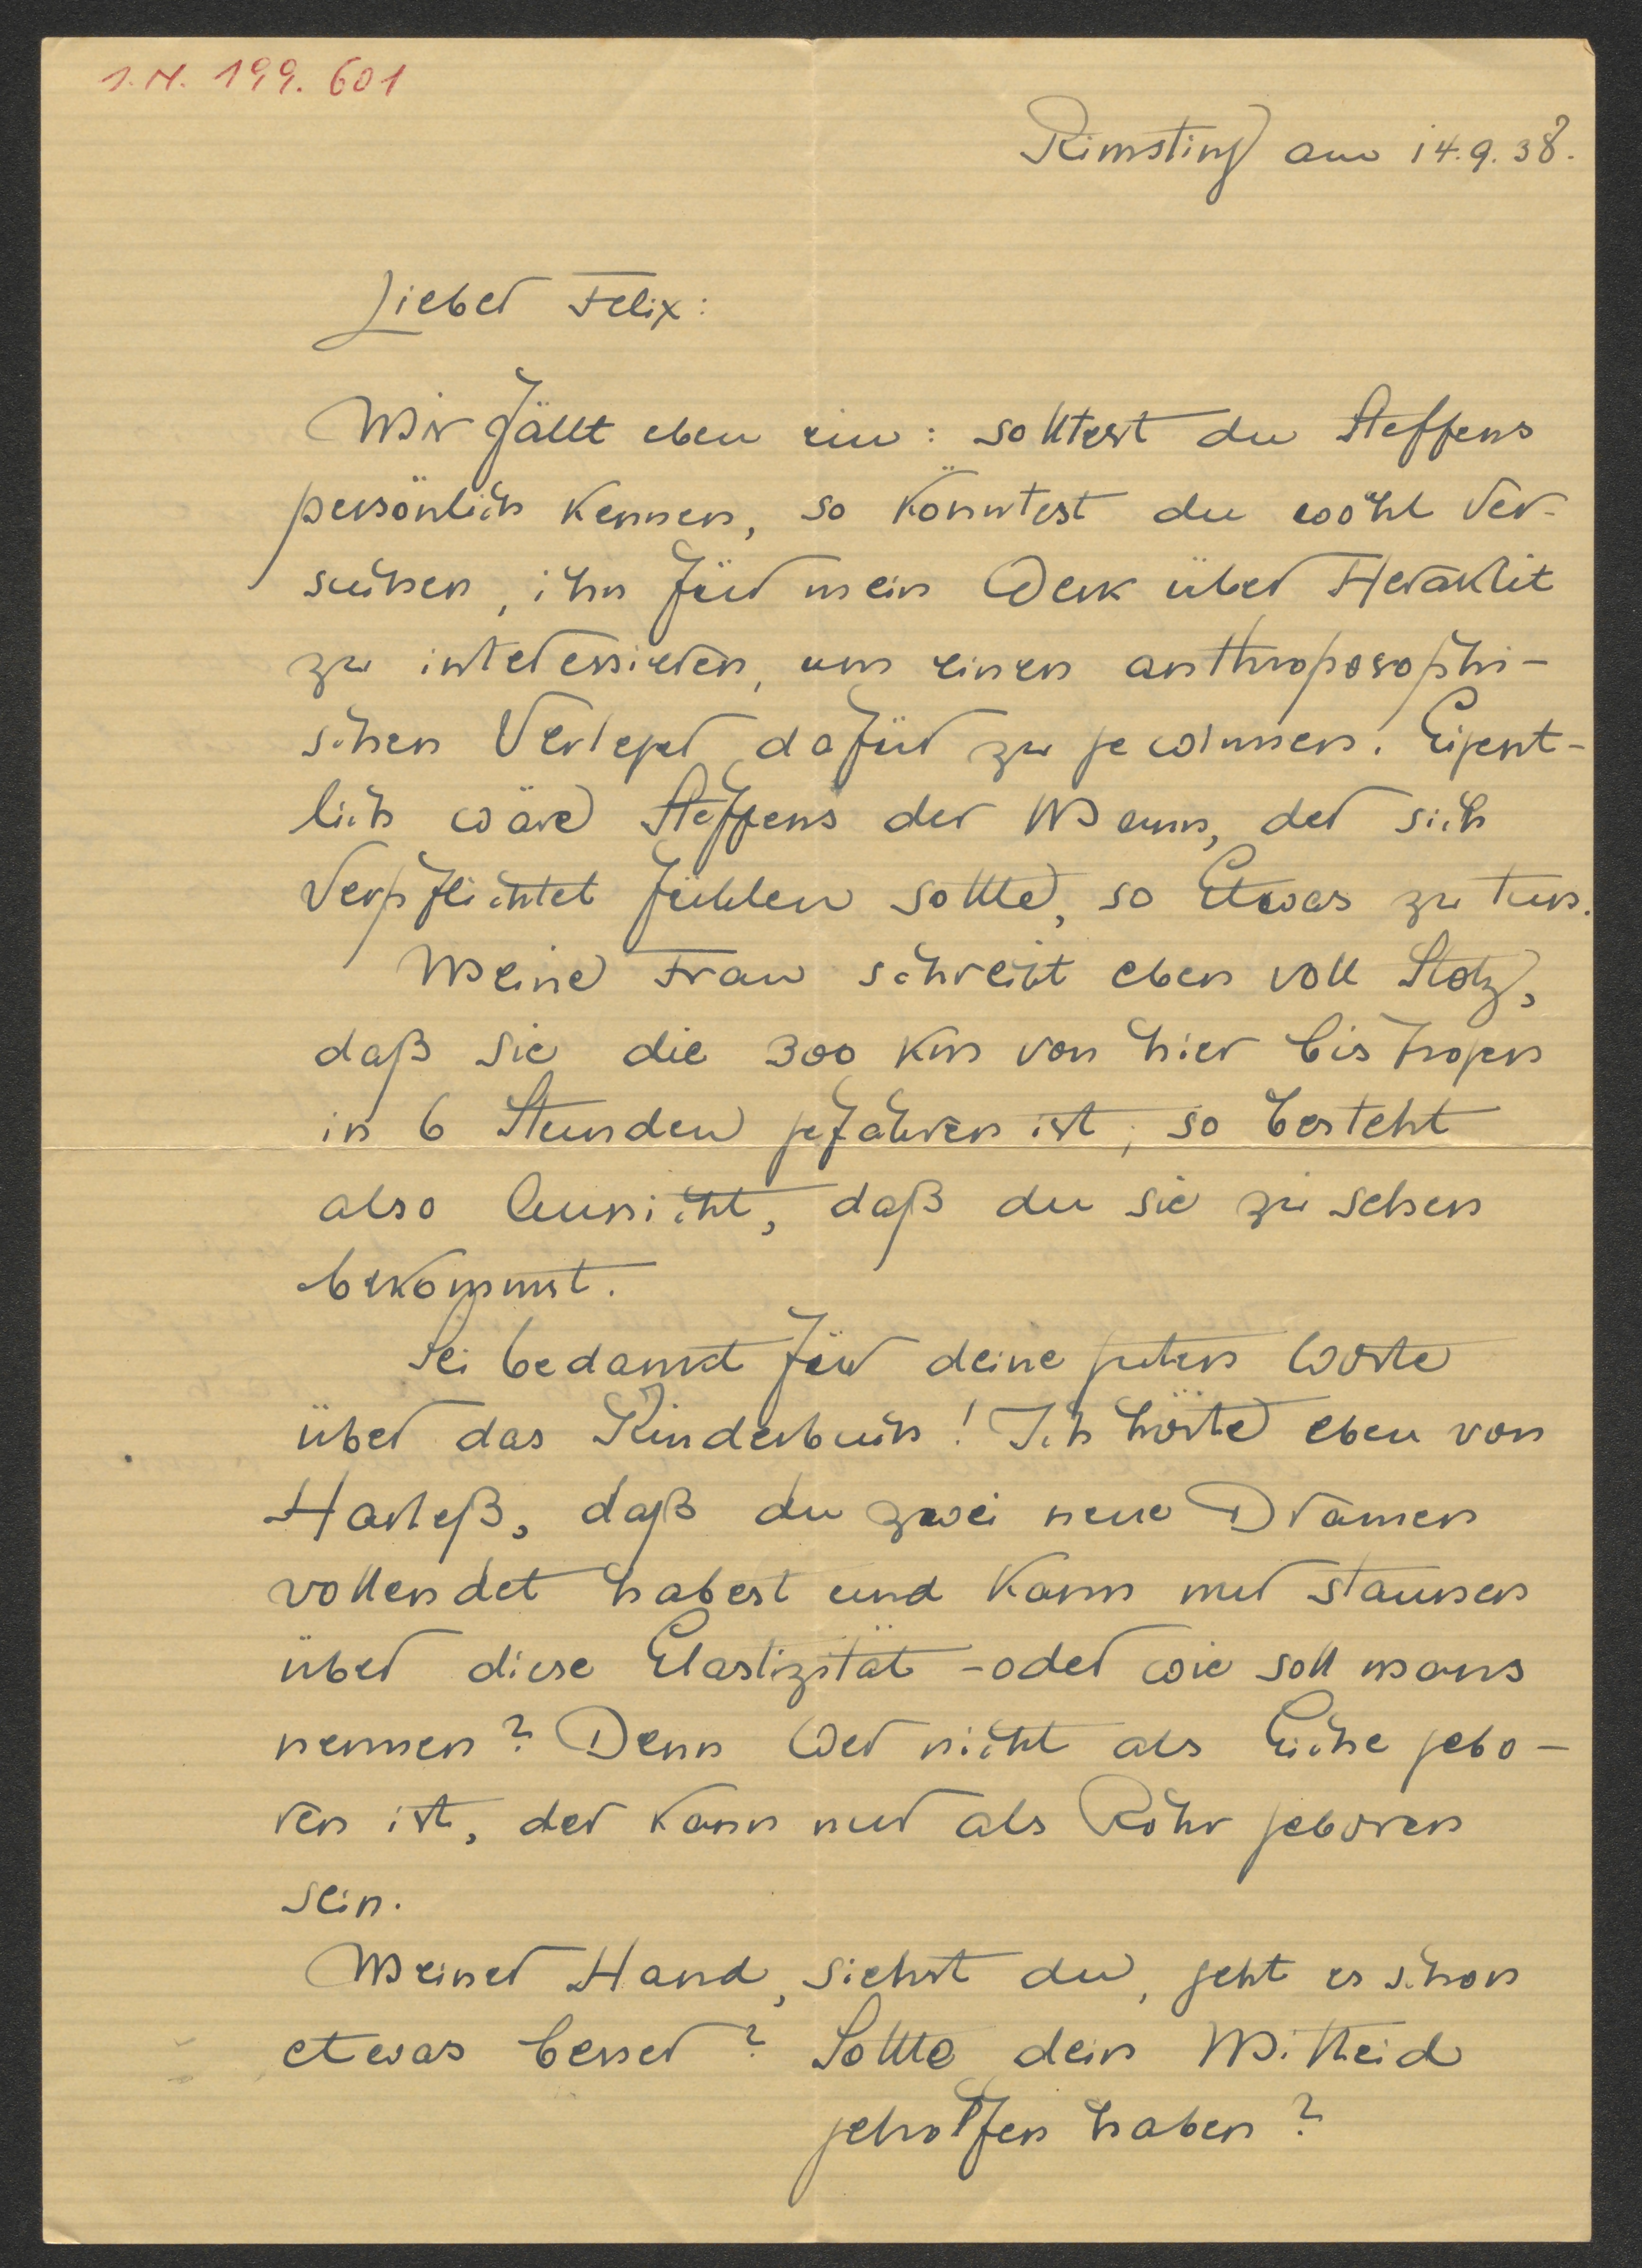 I.N. 199.601
Rimsting am 14.9.38.
Lieber Felix:
Mir fällt eben ein: solltest du Steffens
persönlich kennen, so könntest du wohl ver-
suchen, ihn für mein Werk über Heraklit
zu interessieren, um einen anthroposophi-
schen Verleger dafür zu gewinnen. Eigent-
lich wäre Steffens der Mann, der sich
verpflichtet fühlen sollte, so Etwas zu tun.
Meine Frau schreibt eben voll Stolz,
daß sie die 300 km von hier bis
in 6 Stunden gefahren ist, so besteht
also Aussicht, daß du sie zu sehen
bekommst.
Sei bedankt für deine guten Worte
über das Kinderbuch! Ich hörte eben von
Harleß, daß du zwei neue Dramen
vollendet habest und kann nur staunen
über diese Elastizität - oder wie soll mans
nennen? Denn wer nicht als Eiche gebo-
ren ist, der kann nur als Rohr geboren
sein.
Meiner Hand, siehst du, geht es schon
etwas besser? Sollte dein Mitleid
geholfen haben?